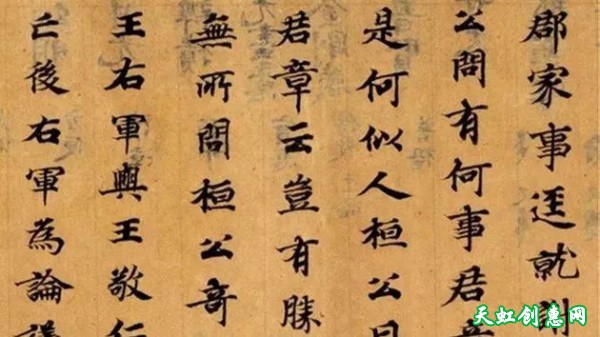 郡家事逕就謝
公問有何事君章
是何似人桓公曰
君章云豈有勝
無所問桓公奇
王右軍與王敬仁
亡後右軍為論議
天虹创惠网